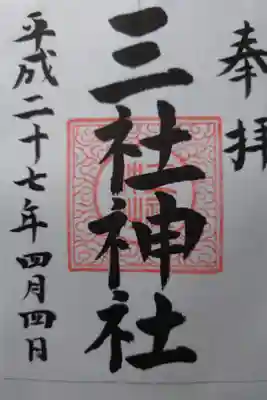 奉拝
三社神社
平成二十七年四月四日